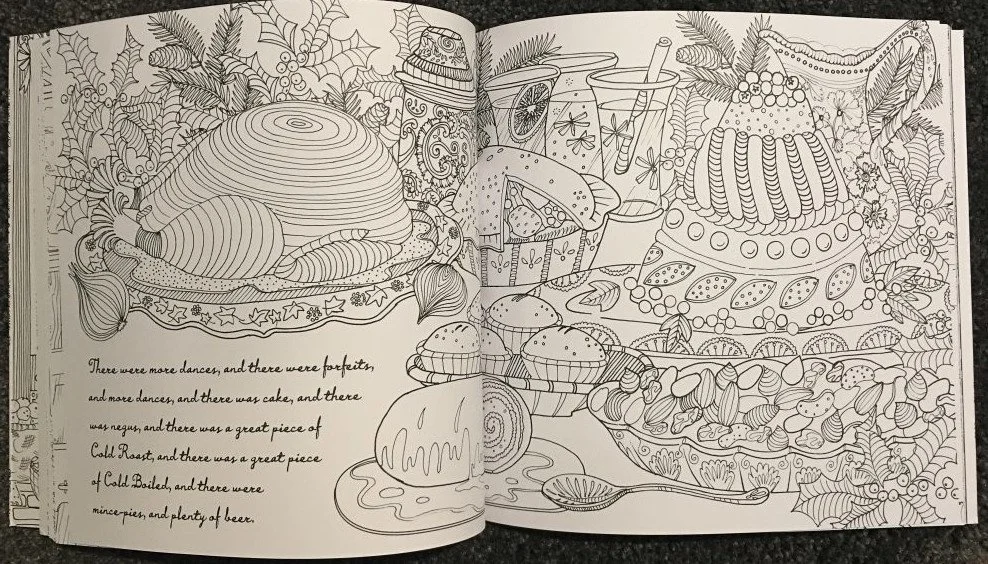 There were more dances, and there were forfeits,
and more dances, and there was cake, and there
was negus, and there was a great piece of
Cold Roast, and there was a great piece
of Cold Boiled, and there were
mince-pies, and plenty of beer.